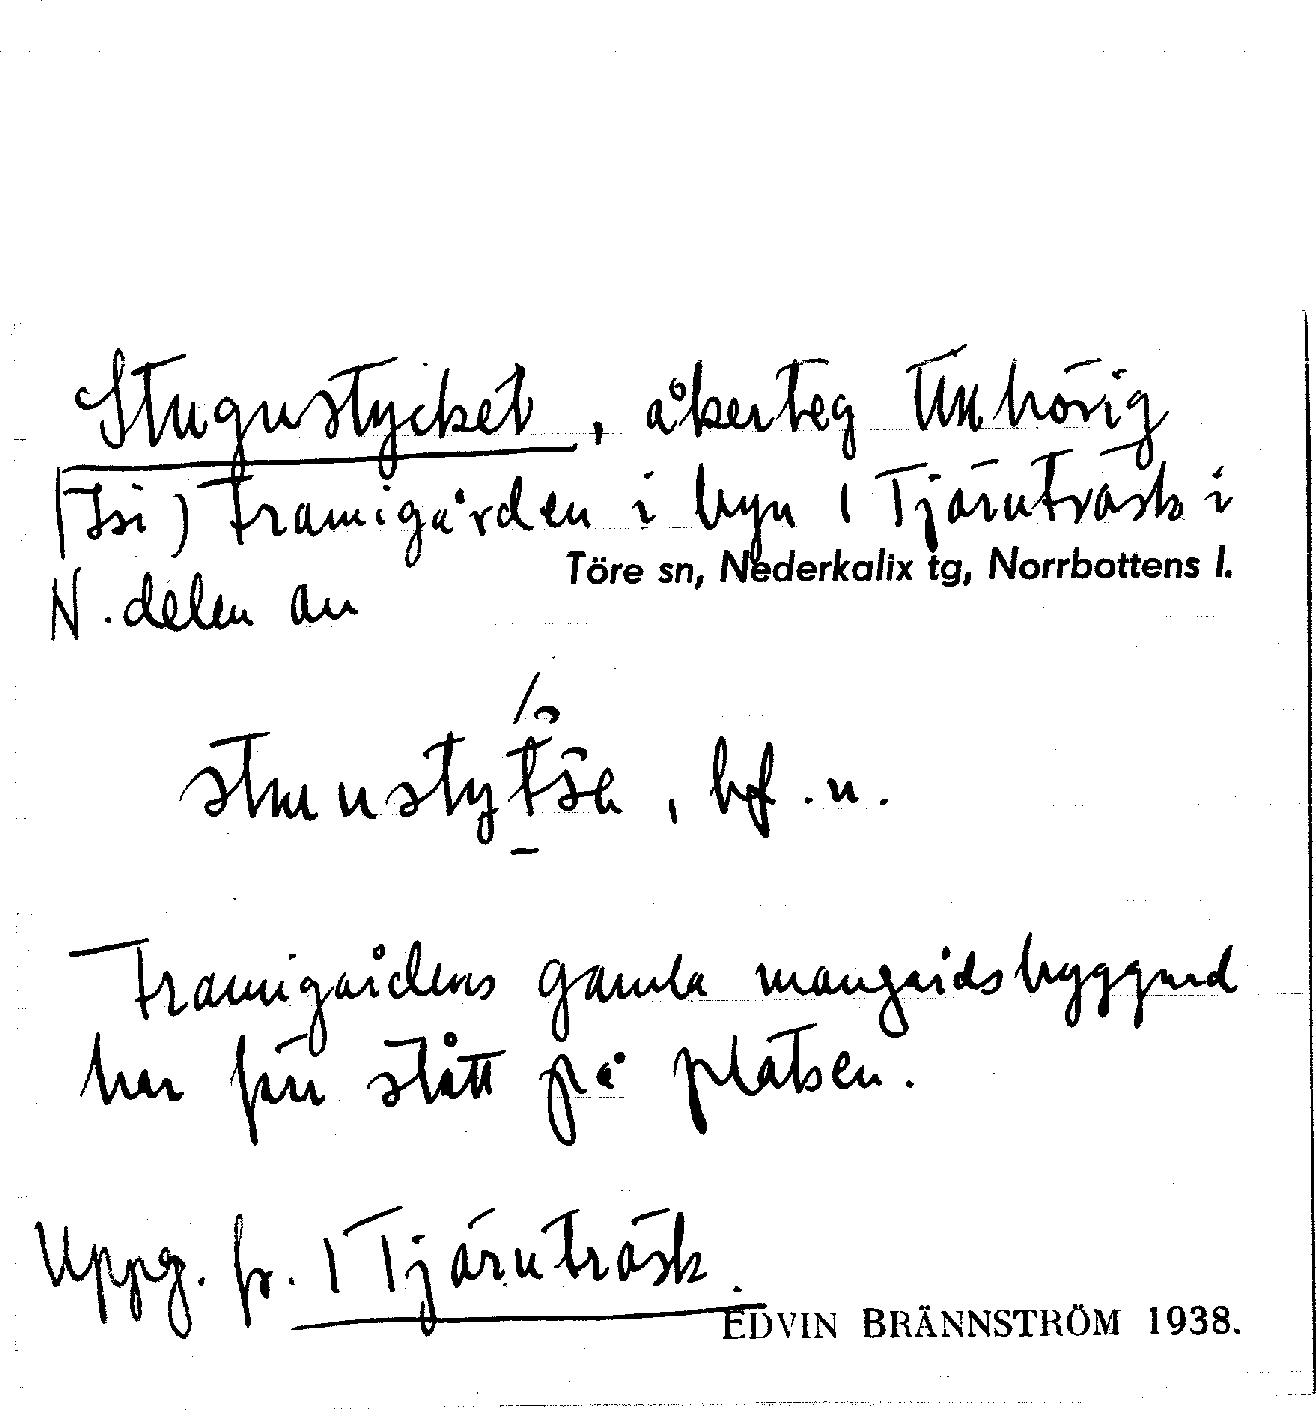 Stugustycket, åkerteg tillhörig
(Isi) Framigården i byn 1 Tjärnträsk i
Töre sn, Nederkalix tg, Norrbottens l.
N. delen av
bf. n.
Framigårdens gamla mangårdsbyggnad
har förr stått på platsen.
Uppg. fr. 1 Tjärnträsk.
EDVIN BRÄNNSTRÖM 1938.